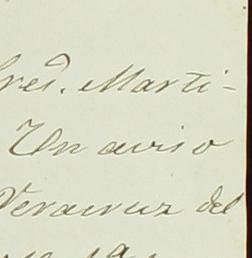 Sres. Marti-
Un aviso
Veracruz del